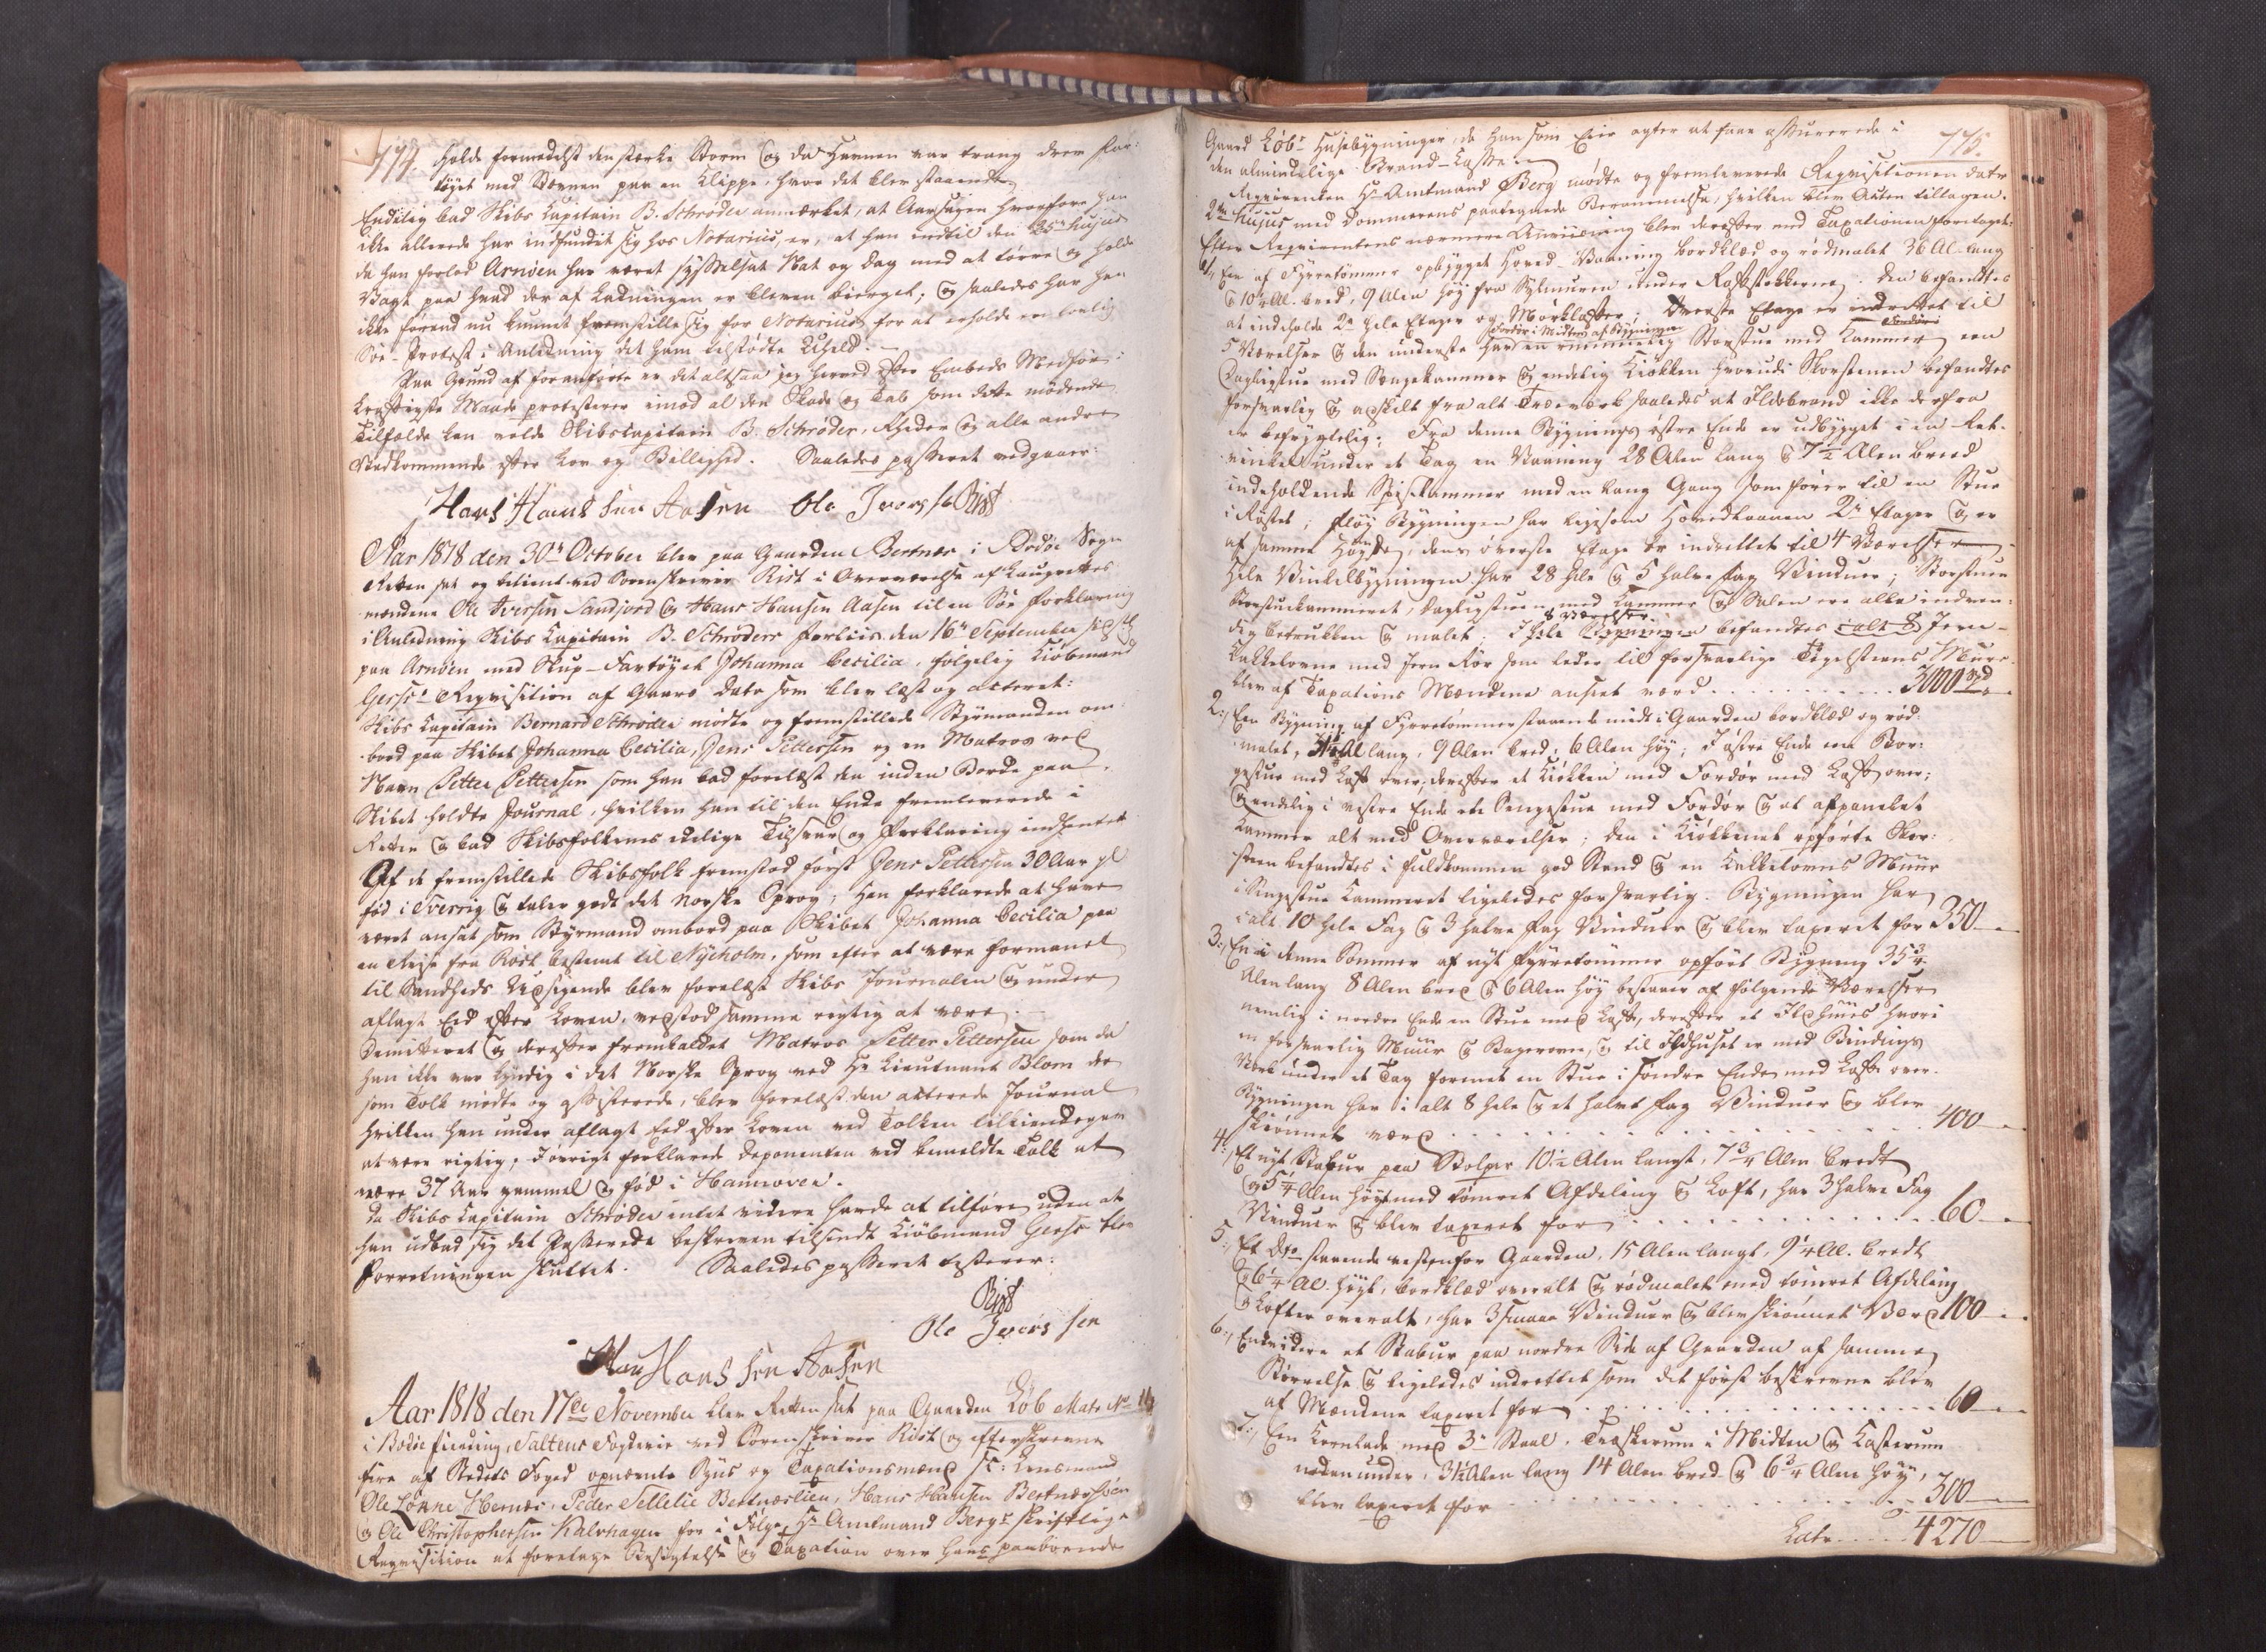 774.
holde formedelst den stærke Storm og da Havnen var trang drev Far-
tøyet med Stevnen paa en Klippe, hvor det blev staaende
Endelig bad Skibs Kapitain B. Schrøder anmærket, at Aarsagen hvorfore han
ikke allerede har indfundet sig hos Notarius, er, at han indtil den 25n hujus
da han forlod Arnøen har været sysselsat Nat og Dag med at tørre og holde
Vagt paa hvad der af Ladningen er bleven bierget; og saaledes har han
ikke førend nu kunnet fremstille sig for Notarius for at erholde en lovlig
Søe-Protest i Anledning det ham tilstødte Uheld.
Paa Grund af foranførte er det altsaa jeg herved efter Embeds Medfør i
kraftigste Maade protesterer imod al den Skade og Tab som dette mødende
Tilfælde kan volde Skibscapitain B. Schrøder, Rheder og alle andre
Vedkommende efter Lov og Billighed. Saaledes passeret vedgaaer:
Hans Hans Sen Aasen Ole Ivers sen Rist
Aar 1818 den 30n October blev paa Gaarden Bertnæs i Bodøe Sogn
Retten sat og betient ved Sorenskriver Rist i Overværelse af Laugrettes
mændene Ole Iversen Sandjord og Hans Hansen Aasen til en Søe Forklaring
i Anledning Skibs Kapitain B. Schrøders Forliis den 16n September sidstl
paa Arnøen med Slup-Fartøyet Johanna Cecilia, følgelig Kiøbmand
Gerss's Reqvisition af Gaars Dato som blev læst og acteret:
Skibs Kapitain Bernard Schrøder mødte og fremstillede Styrmanden om-
bord paa Skibet Johanna Cecilia, Jens Pettersen og en Matros ved
Navn Petter Pettersen som han bad forelæst den inden Borde paa
Skibet holdte Journal, hvilken han til den Ende fremleverede i
Retten og bad Skibsfolkenes edelige Tilsvar og Forklaring indhentet
Af de fremstillede Skibsfolk fremstod først Jens Pettersen 30 Aar gl
fød i Sverrig og taler godt det Norske Sprog; han forklarede at have
været ansat som Styrmand ombord paa Skibet Johanna Cecilia paa
en Reise fra Røst bestemt til Nyeholm, som efter at være formanet
til Sandheds Udsigende blev forelæst Skibs Journalen og under
aflagt Eed efter Loven, vedstod samme rigtig at være.
Demitteret og derefter fremkaldet Matros Petter Pettersen som da
han ikke var kyndig i det Norske Sprog ved Hr Lieutnant Blom der
som Tolk mødte og assisterede, blev forelæst den acterede Journal
hvilken han under aflagt Eed efter Loven ved Tolken tilkiendegav
at være rigtig; I øvrigt forklarede Deponenten ved bemeldte Tolk at
være 37 Aar gammel og fød i Hannover.
Da Skibs Kapitain Schrøder intet videre havde at tilføre uden at
han udbad sig det Passerede beskreven tilsendt Kiøbmand Gerss blev
Forretningen sluttet. Saaledes passeret testerer:
Rist
Ole Ivers sen
Hans Hans Sen Aasen
Aar 1818 den 17de November blev Retten sat paa Gaarden Løb Matr No
i Bodøe Fierding, Saltens Fogderie ved Sorenskriver Rist og efterskrevne
fire af Stedets Foged opnævnte Syns og Taxationsmænd Lensmand
Ole Lønne Hernæs, Peder Tellefse Bertnæslien, Hans Hansen Bertnæsøen
og Ole Christophersen Kalvhagen for i Følge Hr Amtmand Bergs skriftlige
Reqvisition at foretage Besigtelse og Taxation over hans paaboende
775.
Gaard Løbs Husebygninger, da han som Eier agter at faae assurerede i
den almindelige Brand-Kasse.
Reqvirenten Hr Amtmand Berg mødte og fremleverede Reqvisitionen dato
2den hujus med Dommerens paategnede Berammelse, hvilken blev Acten tillagen.
Efter Reqvirentens nærmere Anviisning blev derefter med Taxationen foretaget:
1:, Een af Fyrretømmer opbygget Hoved-Vaaning bordklæd og rødmalet 36 Al. lang
og 10¼ Al. bred, 9 Alen høy fra Sylmuren under Raftstokkerne; den befandtes
at indeholde 2de hele Etager og Mørkloft; Øverste Etage er indrettet til
5 Værelser og den underste har Fordør i Midten af Bygningen en rummelig Storstue med Kammer, en
Dagligstue med Sengekammer og endelig Kiøkken hvorudi Skorstenen befandtes
forsvarlig og adskilt fra alt Træeværk saaledes at Ildebrand ikke derfra
er befrygtelig. Fra denne Bygnings østre Ende er udbygget i en Ret-
vinkel under et Tag en Vaaning 28 Alen lang og 7½ Alen breed
indeholdende Spisekammer med en lang Gang som fører til en Stue
; Fløy Bygningen har ligesom Hovedvaanen 2de Etager og er
af samme Høyde, den øverste Etage er indrettet til 4 Værelser.
Hele Vinkelbygningen har 28 hele og 5 halve Fag Vinduer; Storstuen
Storstuekammeret, Dagligstuen med Kammer og Salen ere alle indven-
dig betrukken og malet. I hele Bygningen befandtes i alt 8 Jern-
Kakkelovne med Jern Rør som leder til forsvarlige Tegelsteens Muure.
blev af Taxations Mændene anseet værd . . . . . . . . . . 3000 Spd
2:, Een Bygning af Fyrretømmer staaende midt i Gaarden bordklæd og rød-
malet, 31½ Al lang, 9 Alen bred, 6 Alen høy; I østre Ende een Bor-
gestue med Loft over, derefter et Kiøkken med Fordør med Loft over;
og endelig i vestre Ende en Sengestue med Fordør og et afpanelet
Kammer alt med Overværelser; den i Kiøkkenet opførte Skor-
steen befandtes i fuldkommen god Stand og en Kakkelovns Muur
i Sengestue Kammeret ligeledes forsvarlig. Bygningen har
i alt 10 hele Fag og 3 halve Fag Vinduer og blev taxeret for 350
3:, En i denne Sommer af nyt Fyrretømmer opført Bygning 35¾
Alen lang 8 Alen bred og 6 Alen høy bestaaer af følgende Værelser
nemlig i nordre Ende en Stue med Loft, derefter et Ildhuus hvori
en forsvarlig Muur og Bagerovn, og til Ildhuset er med Bindings
Værk under et Tag formet en Stue i søndre Ende med Loft over.
Bygningen har i alt 8 hele og et halvt Fag Vinduer og blev
skiønnet værd . . . . . . . . . . 400
4:, Et nyt Stabur paa Stolper 10½ Alen langt, 7¾ Alen bredt
og 5¼ Alen høyt med tømret Afdeling og Loft, har 3 halve Fag
Vinduer og blev taxeret for . . . . . . . . . . 60
5:, Et Dto staaende vestenfor Gaarden, 15 Alen langt, 9¼ Al. bredt
og 6¼ Al. høyt, bordklæd overalt og rødmalet med tømret Afdeling
og Lofter overalt, har 3 smaae Vinduer og blev skiønnet Værd 100
6:, Endvidere et Stabur paa nordre Side af Gaarden af samme
Størrelse og ligeledes indrettet som det først beskrevne blev
af Mændene taxeret for . . . . . . . . . . 60
7:, Een Kornlade med 3de Staal, Træskerum i Midten og Kasterum
nedenunder, 31½ Alen lang 14 Alen bred og 6¾ Alen høy,
blev taxeret for . . . . . . . . . . 300
Latr . . . . 4270